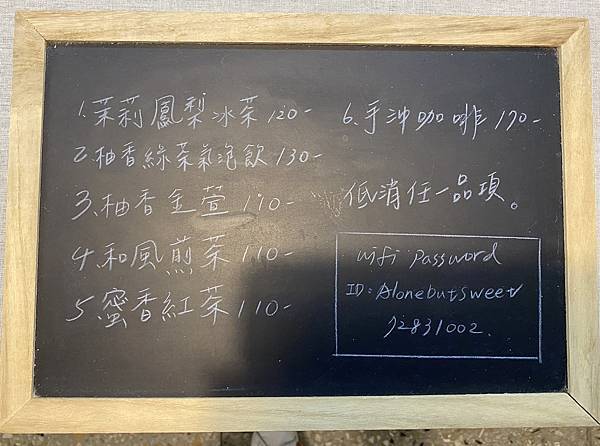 1.茉莉鳳梨冰茶 120-
2.柚香綠茶氣泡飲 130-
3.柚香金萱 110-
4.和風煎茶 110-
5.蜜香紅茶 110-
6.手沖咖啡 170-
低消任一品項。
wifi password
ID:Alonebutsweet